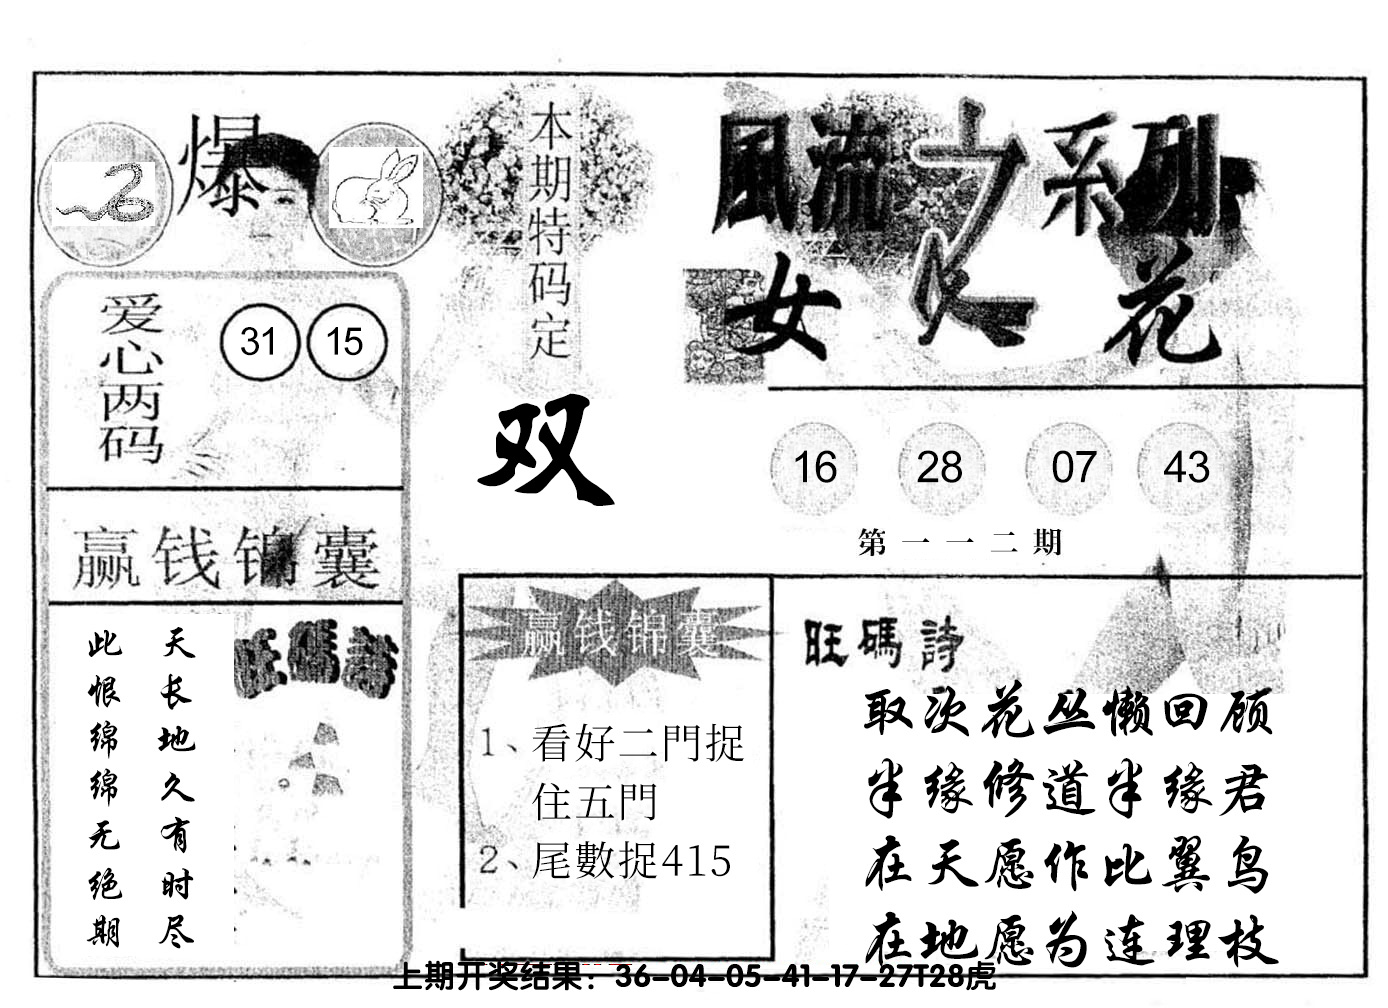 爆
本期特码定
双
風流之系列
女人花
爱心两码
31 15
16 28 07 43
第一一二期
赢钱锦囊
天长地久有时尽
此恨绵绵无绝期
旺碼詩
赢钱锦囊
1、看好二門捉
住五門
2、尾數捉415
旺碼詩
取次花丛懒回顾
半缘修道半缘君
在天愿作比翼鸟
在地愿为连理枝
上期开奖结果：36-04-05-41-17-27T28虎